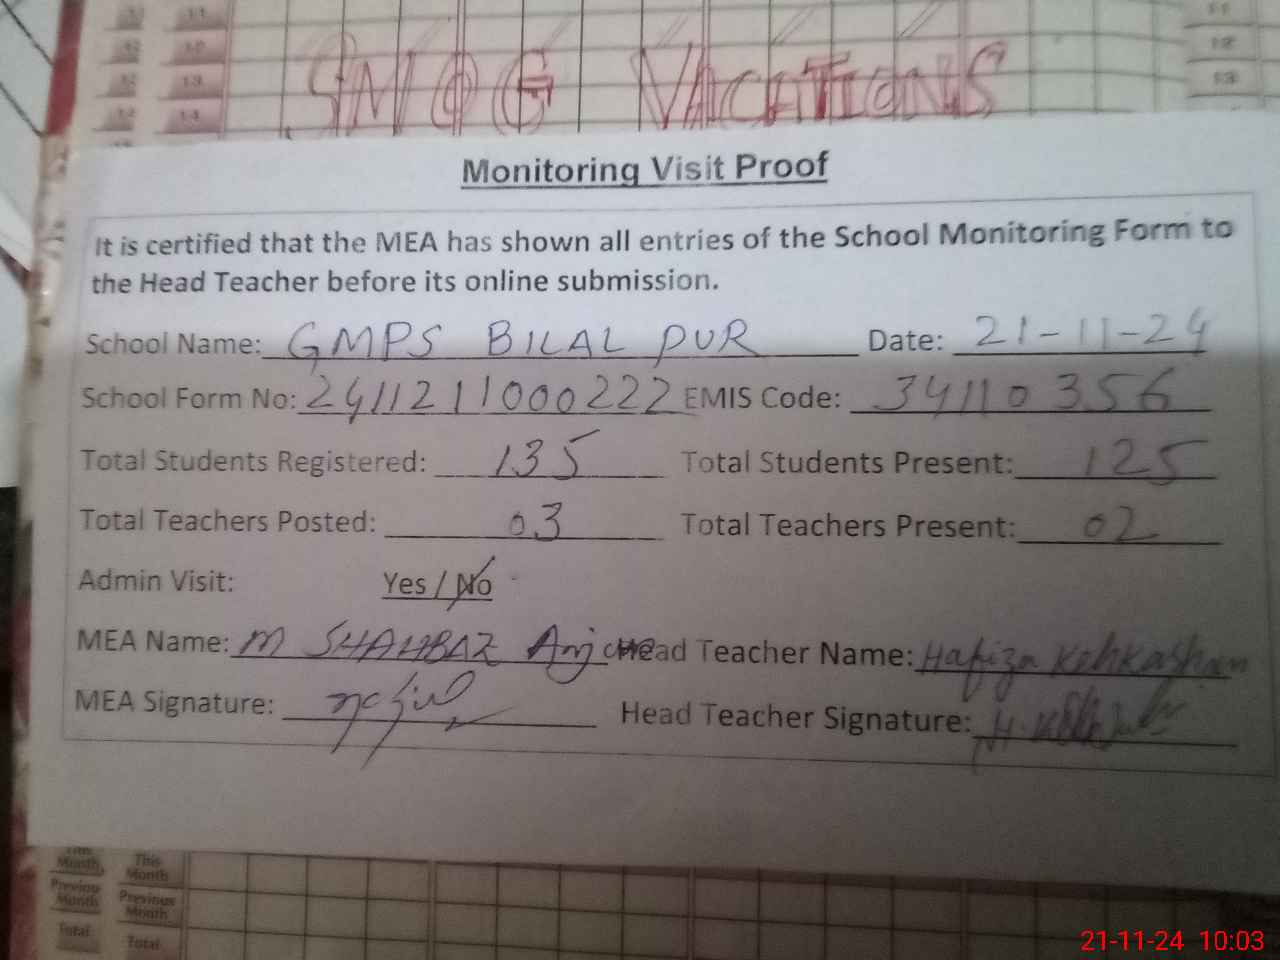 11 11
12 12 12
13 13 13
14 14
SMOG VACATIONS
Monitoring Visit Proof
It is certified that the MEA has shown all entries of the School Monitoring Form to
the Head Teacher before its online submission.
School Name: GMPS BILAL PUR Date: 21-11-24
School Form No: 2411211000222 EMIS Code: 34110356
Total Students Registered: 135 Total Students Present: 125
Total Teachers Posted: 03 Total Teachers Present: 02
Admin Visit: Yes / No
MEA Name: M SHAHBAZ Anjum Head Teacher Name: Hafiza Kohkashan
MEA Signature: Head Teacher Signature:
This Month This Month
Previous Month Previous Month
Total Total
21-11-24 10:03